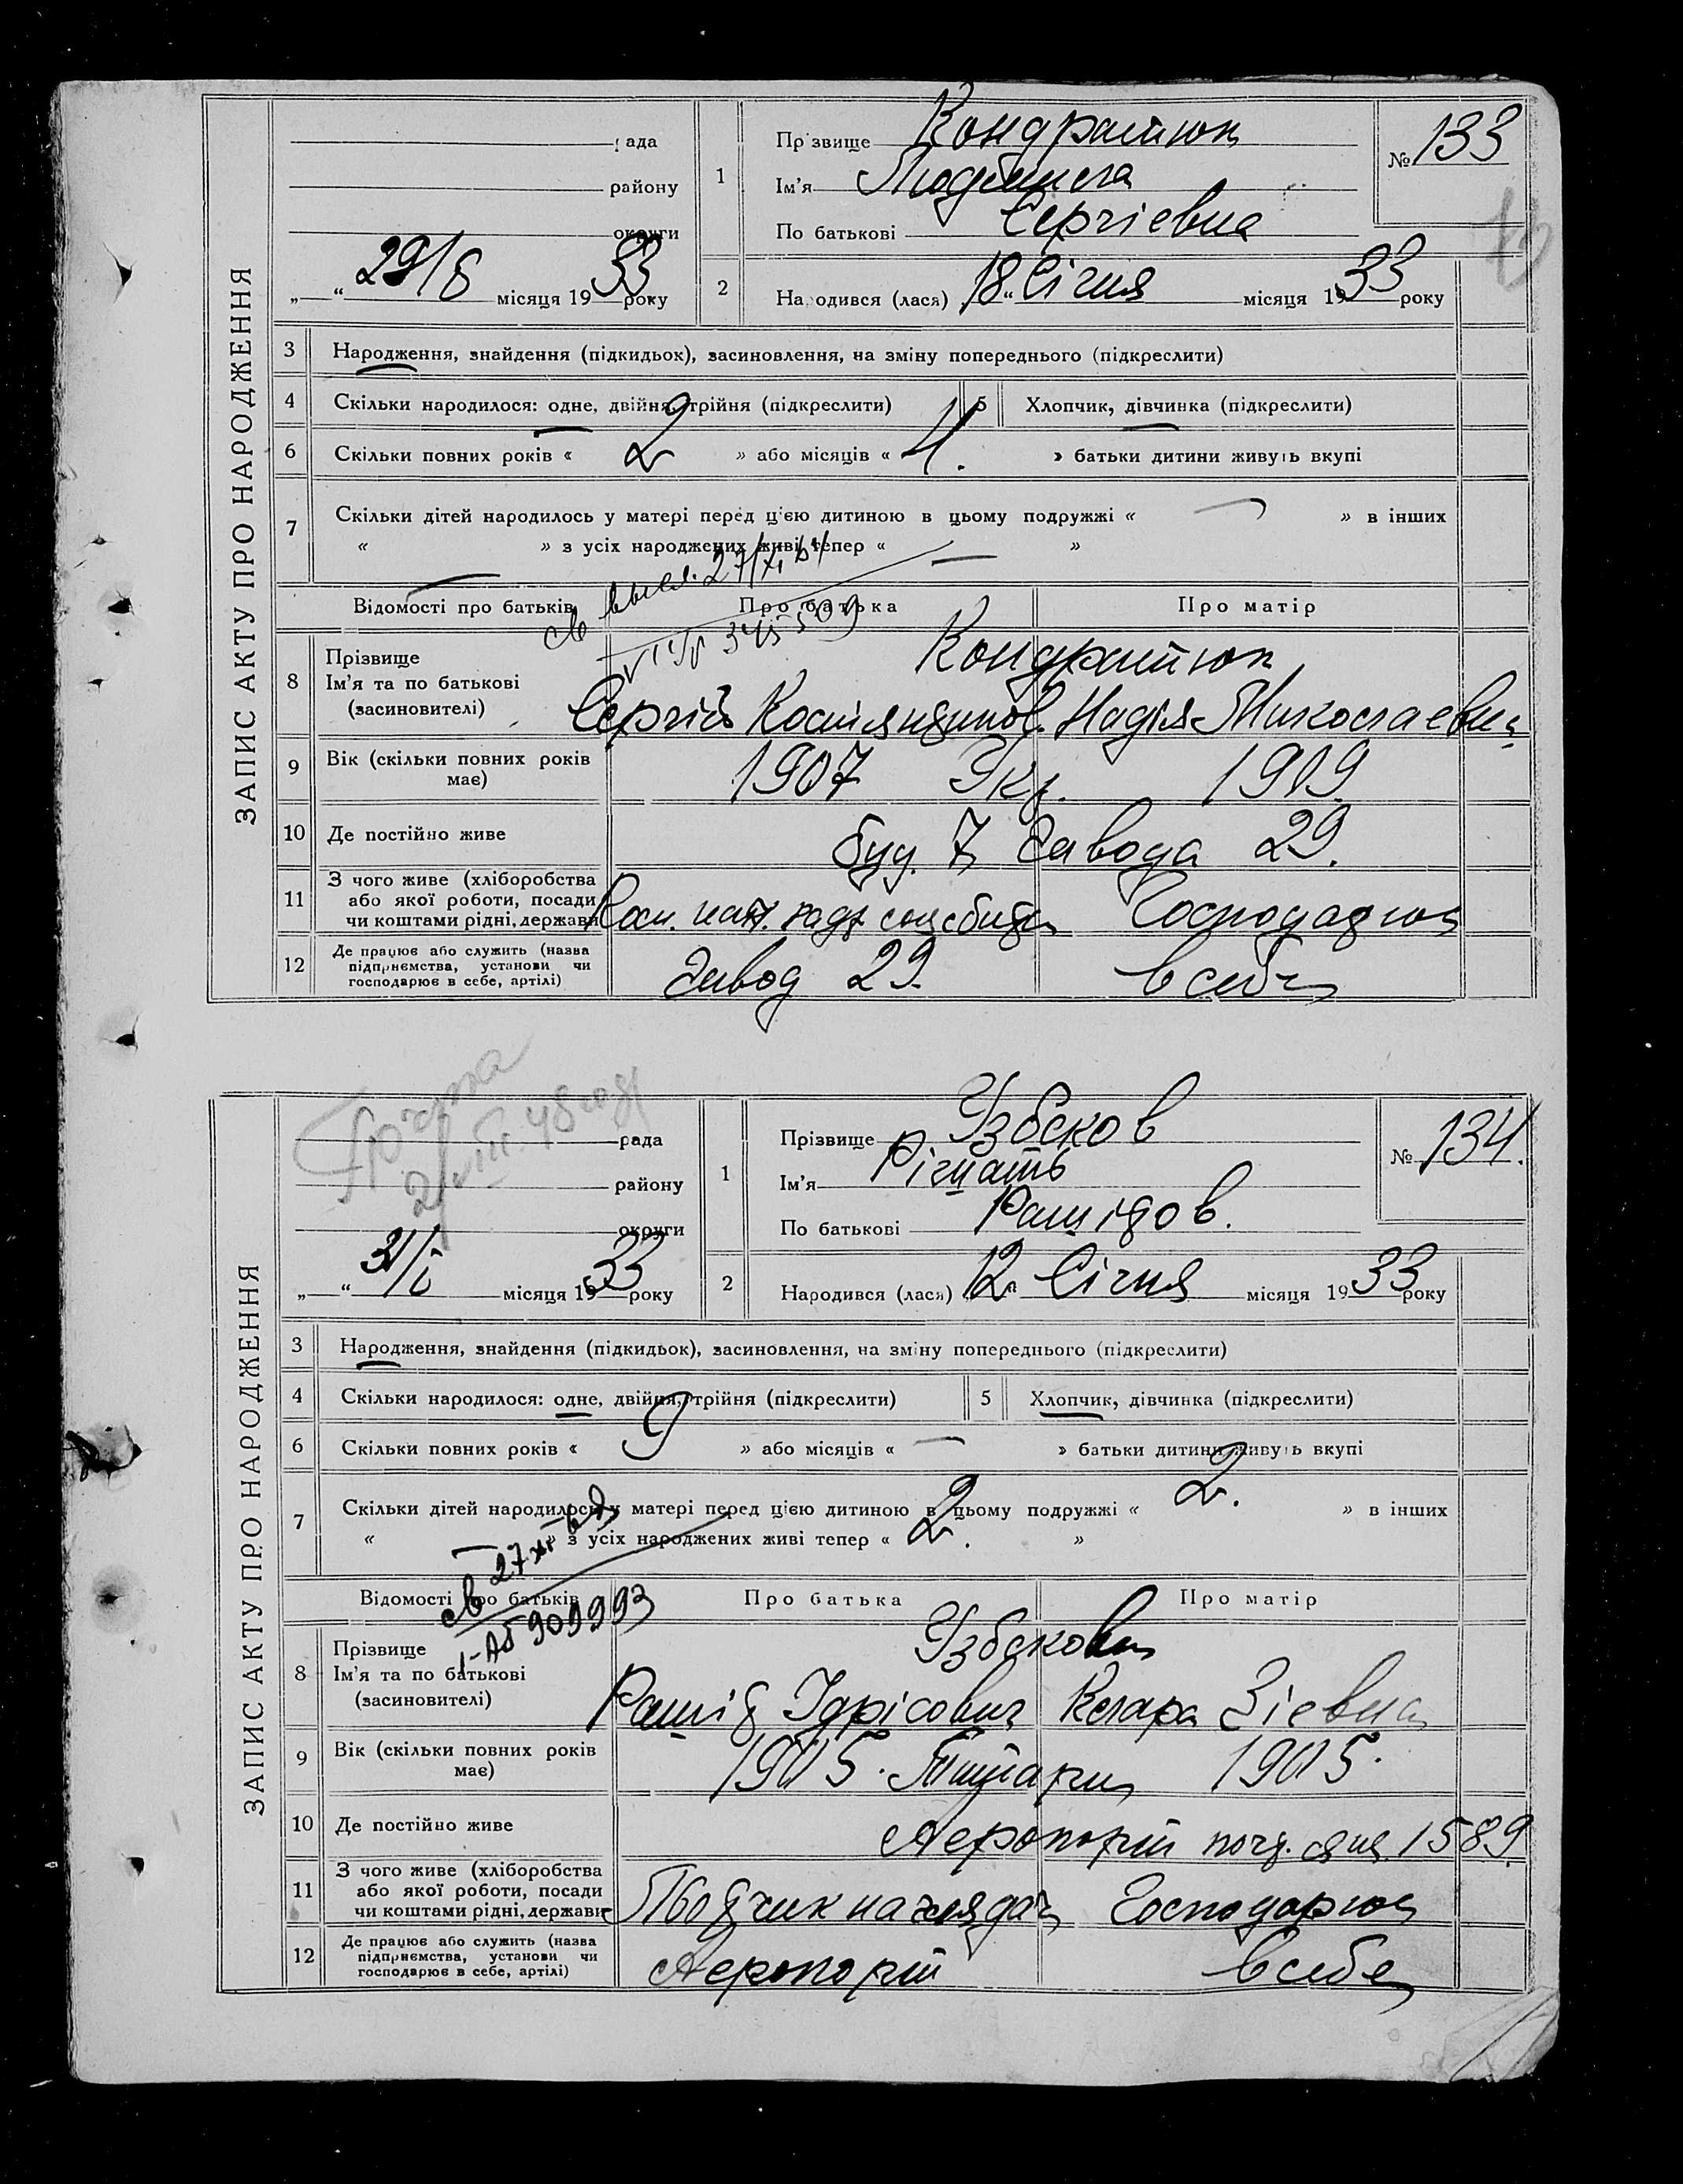 ЗАПИС АКТУ ПРО НАРОДЖЕННЯ
рада
району
округи
„ “ 29/ місяця 1933 року
1 Прізвище Кондратюк
Ім’я Людмила
По батькові Сергіевна
№ 133
2 Народився (лася) 18 “ Січня місяця 1933 року
3 Народження, знайдення (підкидьок), засиновлення, на зміну попереднього (підкреслити)
4 Скільки народилося: одне, двійня, трійня (підкреслити) 5 Хлопчик, дівчинка (підкреслити)
6 Скільки повних років « 2 » або місяців « 4. » батьки дитини живуть вкупі
7 Скільки дітей народилось у матері перед цією дитиною в цьому подружжі « — » в інших
« — » з усіх народжених живі тепер « — »
св 27/XI
Відомості про батьків Про батька Про матір
8 Прізвище Кондратюк
Ім’я та по батькові
(засиновителі) Сергій Костянтинов. Надія Миколаевна
9 Вік (скільки повних років має) 1907 Укр. 1909
10 Де постійно живе буд. 7 Завода 29.
11 З чого живе (хліборобства або якої роботи, посади чи коштами рідні, держави Господарює
12 Де працює або служить (назва підприємства, установи чи господарює в себе, артілі) Завод 29. в себе
ЗАПИС АКТУ ПРО НАРОДЖЕННЯ
рада
району
округи
„ “ 31/I місяця 1933 року
1 Прізвище Узбеков
Ім’я Рішать
По батькові Рашідов.
№ 134.
2 Народився (лася) 12 “ Січня місяця 1933 року
3 Народження, знайдення (підкидьок), засиновлення, на зміну попереднього (підкреслити)
4 Скільки народилося: одне, двійня, трійня (підкреслити) 5 Хлопчик, дівчинка (підкреслити)
6 Скільки повних років « 9 » або місяців « — » батьки дитини живуть вкупі
7 Скільки дітей народилось у матері перед цією дитиною в цьому подружжі « 2. » в інших
« — » з усіх народжених живі тепер « 2. »
св 27
909993
Відомості про батьків Про батька Про матір
8 Прізвище Узбекови
Ім’я та по батькові
(засиновителі) Рашід Ідрісович Клара Зіевна
9 Вік (скільки повних років має) 1905. Татари 1905.
10 Де постійно живе Аеропорт 1589.
11 З чого живе (хліборобства або якої роботи, посади чи коштами рідні, держави Господарює
12 Де працює або служить (назва підприємства, установи чи господарює в себе, артілі) Аеропорт в себе